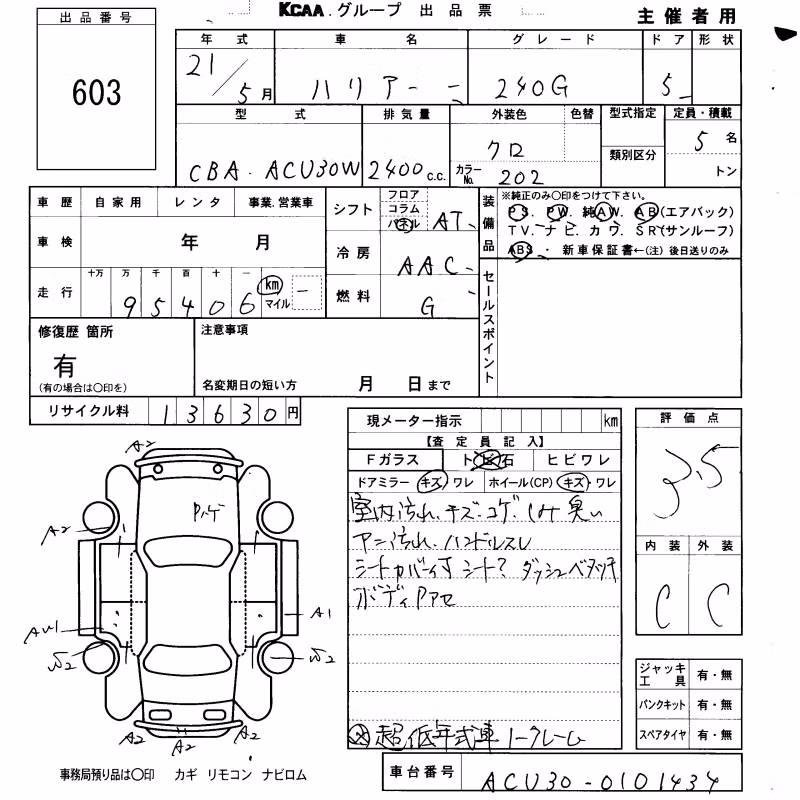 KCAA.グループ 出品票
主催者用
出品番号
603
年式 車名 グレード ドア 形状
21/5月 ハリアー 240G 5
型式 排気量 外装色 色替 型式指定 定員・積載
CBA-ACU30W 2400c.c. クロ 5名
カラーNo. 202 類別区分 トン
車歴 自家用 レンタ 事業.営業車
車検 年 月
走行 十万 万 千 百 十 一
95406 km マイル
シフト フロア コラム パネル AT
冷房 AAC
燃料 G
装備品 ※純正のみ○印をつけて下さい。
PS. PW. 純AW. AB(エアバック)
TV. ナビ. カワ. SR(サンルーフ)
ABS ・ 新車保証書←(注) 後日送りのみ
セールスポイント
修復歴 箇所
有
(有の場合は○印を)
注意事項
名変期日の短い方 月 日まで
リサイクル料 13630円
現メーター指示 km
【査定員記入】
Fガラス トビ石 ヒビワレ
ドアミラー キズ・ワレ ホイール(CP) キズ・ワレ
室内汚れ、キズ・コゲ・しみ 臭い
汚れ、ハンドルスレ
シートカバー付 シート? ダッシュベタツキ
ボディPアセ
超低年式車ノークレーム
評価点
3.5
内装 外装
C C
ジャッキ工具 有・無
パンクキット 有・無
スペアタイヤ 有・無
A2
Pハゲ
A2
AW1
A1
A2
A2
A2
事務局預り品は○印 カギ リモコン ナビロム
車台番号 ACU30-0101434